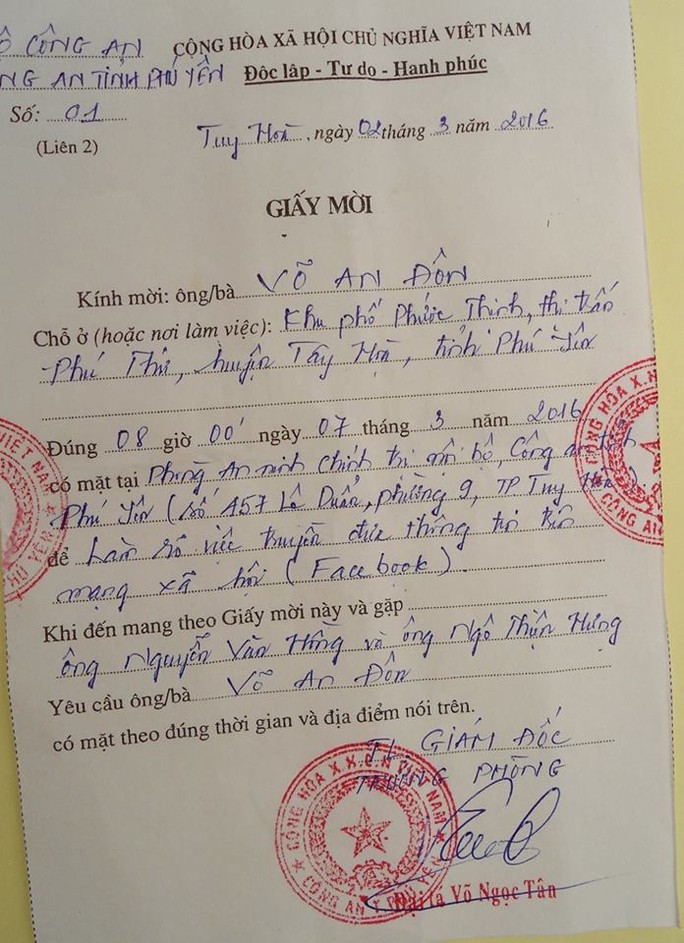 Ộ CÔNG AN CỘNG HÒA XÃ HỘI CHỦ NGHĨA VIỆT NAM
NG AN TỈNH PHÚ YÊN Độc lập - Tự do - Hạnh phúc
Số: 01
(Liên 2) Tuy Hoà, ngày 02 tháng 3 năm 2016
GIẤY MỜI
Kính mời: ông/bà VÕ AN ĐÔN
Chỗ ở (hoặc nơi làm việc): Khu phố Phước Thịnh, thị trấn
Phú Thứ, huyện Tây Hoà, tỉnh Phú Yên
Đúng 08 giờ 00' ngày 07 tháng 3 năm 2016
có mặt tại Phòng An ninh chính trị nội bộ, Công an tỉnh
Phú Yên (số 457 Lê Duẩn, phường 9, TP Tuy Hòa)
để Làm rõ việc truyền đưa thông tin trên
mạng xã hội (Facebook).
Khi đến mang theo Giấy mời này và gặp
ông Nguyễn Văn Hồng và ông Ngô Thuận Hưng
Yêu cầu ông/bà Võ An Đôn
có mặt theo đúng thời gian và địa điểm nói trên.
TL GIÁM ĐỐC
TRƯỞNG PHÒNG
CỘNG HÒA X.H.C.N VIỆT NAM
CÔNG AN T.PHÚ YÊN
Đại tá Võ Ngọc Tân